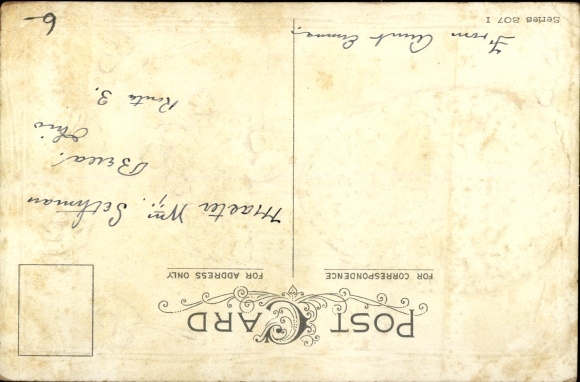 POST CARD
FOR CORRESPONDENCE
FOR ADDRESS ONLY
Master Wm. Sethman
Berea!
Ohio
Route 3.
From Aunt Emma;
Series 807 I
6-